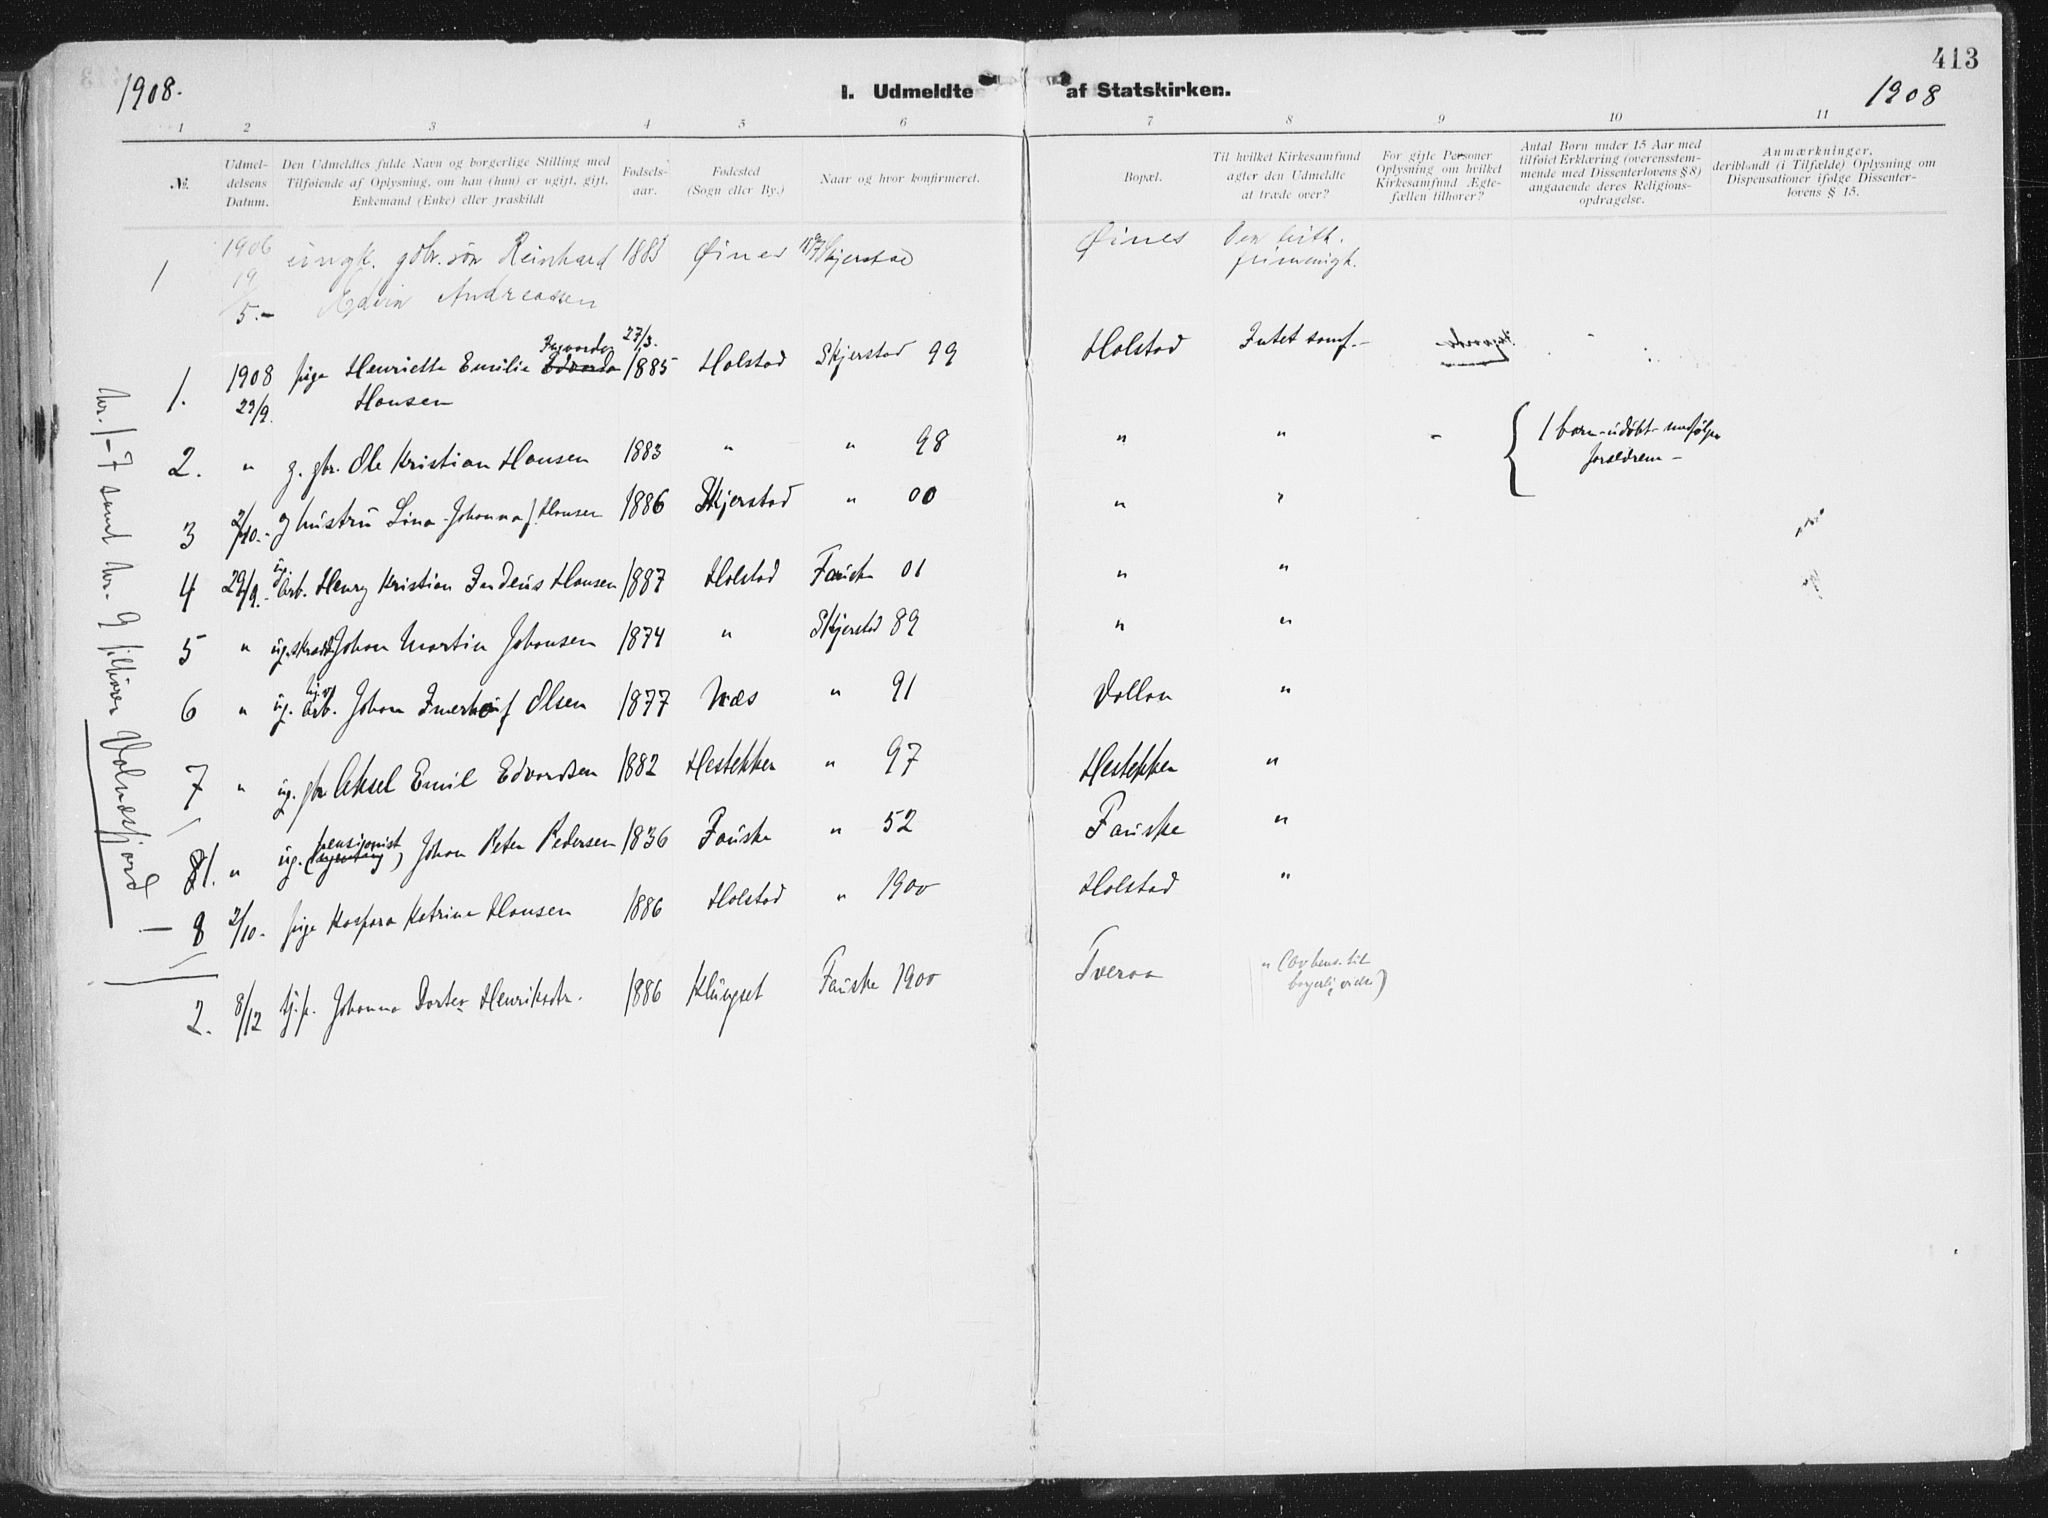 413
1908.
I. Udmeldte af Statskirken.
1908
1 2 3 4 5 6 7 8 9 10 11
№.
Udmel-
delsens
Datum.
Den Udmeldtes fulde Navn og borgerlige Stilling med
Tilføiende af Oplysning, om han (hun) er ugift, gift,
Enkemand (Enke) eller fraskildt
Fødsels-
aar.
Fødested
(Sogn eller By.)
Naar og hvor konfirmeret.
Bopæl.
Til hvilket Kirkesamfund
agter den Udmeldte
at træde over?
For gifte Personer
Oplysning om hvilket
Kirkesamfund Ægte-
fællen tilhører?
Antal Børn under 15 Aar med
tilføiet Erklæring (overensstem-
mende med Dissenterlovens § 8)
angaaende deres Religions-
opdragelse.
Anmærkninger,
deriblandt (i Tilfælde) Oplysning om
Dispensationer ifølge Dissenter-
lovens § 15.
1 1906 ungk. gbr. søn Reinhard 1883 Øines Skjerstad Øines Den luth.
19/5.- Edvin Andreassen frimenigh.
Ingvarda 27/3.
1. 1908 pige Henriette Emilie Edvarda 1885 Holstad Skjerstad 99 Holstad Intet samf.-
29/9. Hansen
2. " g. gbr. Ole Kristian Hansen 1883 " " 98 " " - 1 barn - udøbt - medfølger
forældrene -
3 2/10.- g hustru Lina Johanna f. Hansen 1886 Skjerstad " 00 " "
4 29/9.- ug. arb. Henry Kristian Indeus Hansen 1887 Holstad Fauske 01 " "
5 " ug. skrædd. Johan Martin Johansen 1874 " Skjerstad 89 " "
6 " ug. arb. Johan Olsen 1877 Næs " 91 Vollan "
7 " ug. gbr Aksel Emil Edvardsen 1882 Hestekken " 97 Hestekken "
pensjonist
81. " ug. Johan Peter Pedersen 1836 Fauske " 52 Fauske "
8 2/10- pige Kaspara Katrine Hansen 1886 Holstad " 1900 Holstad "
2. 8/12 tj.p. Johanna Dortea Henriksdtr. 1886 Klungset Fauske 1900 Tveraa " (Lovbens. til
borgerlig vielse)
Nr. 1-7 samt Nr. 9 tilhører Valnæsfjord